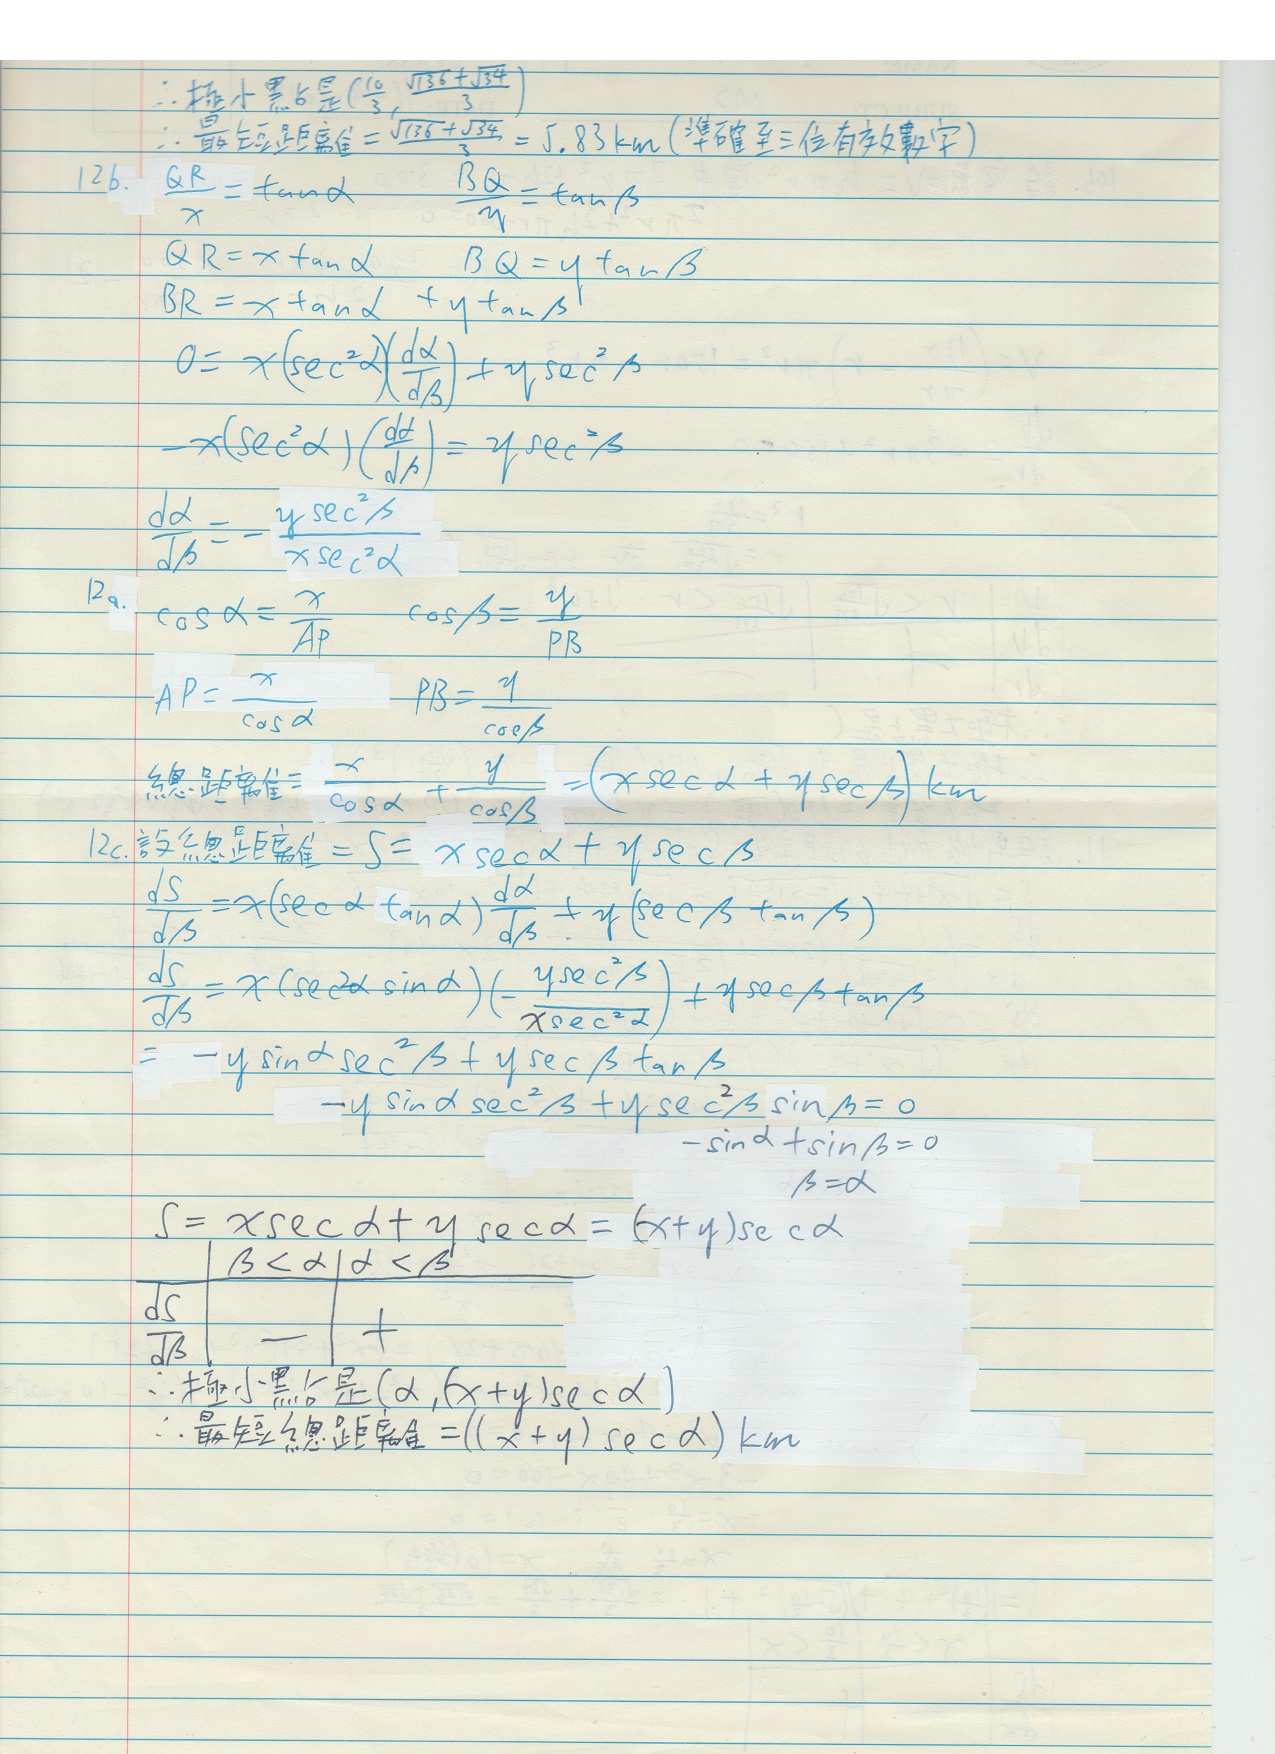 ∴極小點是(10/3, (√136+√34)/3)
∴最短距離=(√136+√34)/3=5.83km(準確至三位有效數字)
12b. QR/x=tanα BQ/y=tanβ
QR=x tanα BQ=y tanβ
BR=x tanα +y tanβ
0=x(sec²α)(dα/dβ)+y sec²β
-x(sec²α)(dα/dβ)=y sec²β
dα/dβ=-(y sec²β)/(x sec²α)
12a. cosα=x/AP cosβ=y/PB
AP=x/cosα PB=y/cosβ
總距離=x/cosα+y/cosβ=(x secα+y secβ)km
12c.設總距離=S=x secα+y secβ
dS/dβ=x(secα tanα)dα/dβ+y(secβ tanβ)
dS/dβ=x(sec2α sinα)(-(y sec²β)/(x sec²α))+y secβ tanβ
= -y sinα sec²β+y secβ tanβ
-y sinα sec²β+y sec²β sinβ=0
-sinα+sinβ=0
β=α
S=x secα+y secα=(x+y)secα
β<α α<β
dS/dβ — +
∴極小點是(α,(x+y)secα)
∴最短總距離=((x+y)secα)km